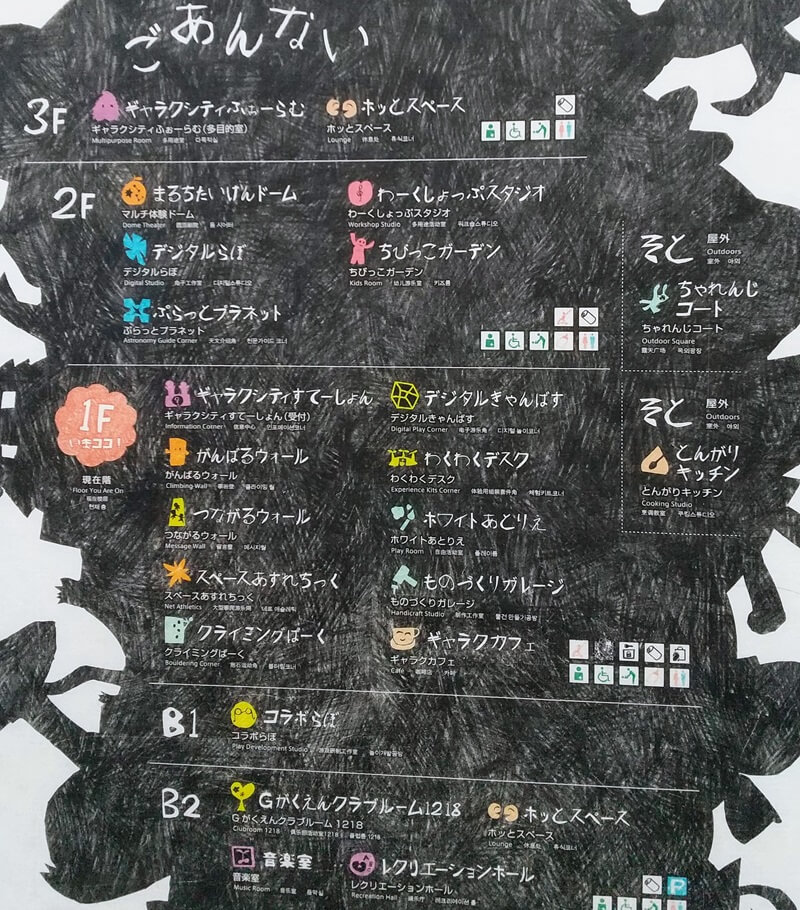 ごあんない
3F
ギャラクシティふぉーらむ
ギャラクシティふぉーらむ(多目的室)
Multipurpose Room 多用途室 다목적실
ホッとスペース
ホッとスペース
Lounge 休息处 휴식코너
2F
まるちたいけんドーム
マルチ体験ドーム
Dome Theater 돔 시어터
わーくしょっぷスタジオ
わーくしょっぷスタジオ
Workshop Studio 多用途活动室 워크숍스튜디오
デジタルらぼ
デジタルらぼ
Digital Studio 电子工作室 디지털스튜디오
ちびっこガーデン
ちびっこガーデン
Kids Room 幼儿游乐室 키즈룸
ぷらっとプラネット
ぷらっとプラネット
Astronomy Guide Corner 天文介绍角 천문가이드 코너
そと
屋外
Outdoors
室外 야외
ちゃれんじ
コート
ちゃれんじコート
Outdoor Square
露天广场 옥외광장
1F
いまココ!
現在階
Floor You Are On
现在楼层
현재 층
ギャラクシティすてーしょん
ギャラクシティすてーしょん(受付)
Information Corner 信息中心 인포메이션코너
デジタルきゃんばす
デジタルきゃんばす
Digital Play Corner 电子游乐角 디지털 놀이코너
がんばるウォール
がんばるウォール
Climbing Wall 攀岩壁 클라이밍 월
わくわくデスク
わくわくデスク
Experience Kits Corner 体验用组装套件角 체험키트코너
つながるウォール
つながるウォール
Message Wall 留言壁 메시지월
ホワイトあとりえ
ホワイトあとりえ
Play Room 自由活动室 플레이룸
スペースあすれちっく
スペースあすれちっく
Net Athletics 大型攀爬游乐网 네트 애슬레틱
ものづくりガレージ
ものづくりガレージ
Handicraft Studio 制作工作室 물건만들기공방
クライミングぱーく
クライミングぱーく
Bouldering Corner 抱石运动角 볼더링코너
ギャラクカフェ
ギャラクカフェ
Café 咖啡店 카페
そと
屋外
Outdoors
室外 야외
とんがり
キッチン
とんがりキッチン
Cooking Studio
烹调教室 쿠킹스튜디오
B1
コラボらぼ
コラボらぼ
Play Development Studio 游戏研制工作室 놀이개발공방
B2
Gがくえんクラブルーム1218
Gがくえんクラブルーム1218
Clubroom 1218 俱乐部活动室1218 클럽룸 1218
ホッとスペース
ホッとスペース
Lounge 休息处 휴식코너
音楽室
音楽室
Music Room 音乐室 음악실
レクリエーションホール
レクリエーションホール
Recreation Hall 娱乐厅 레크리에이션 홀
P